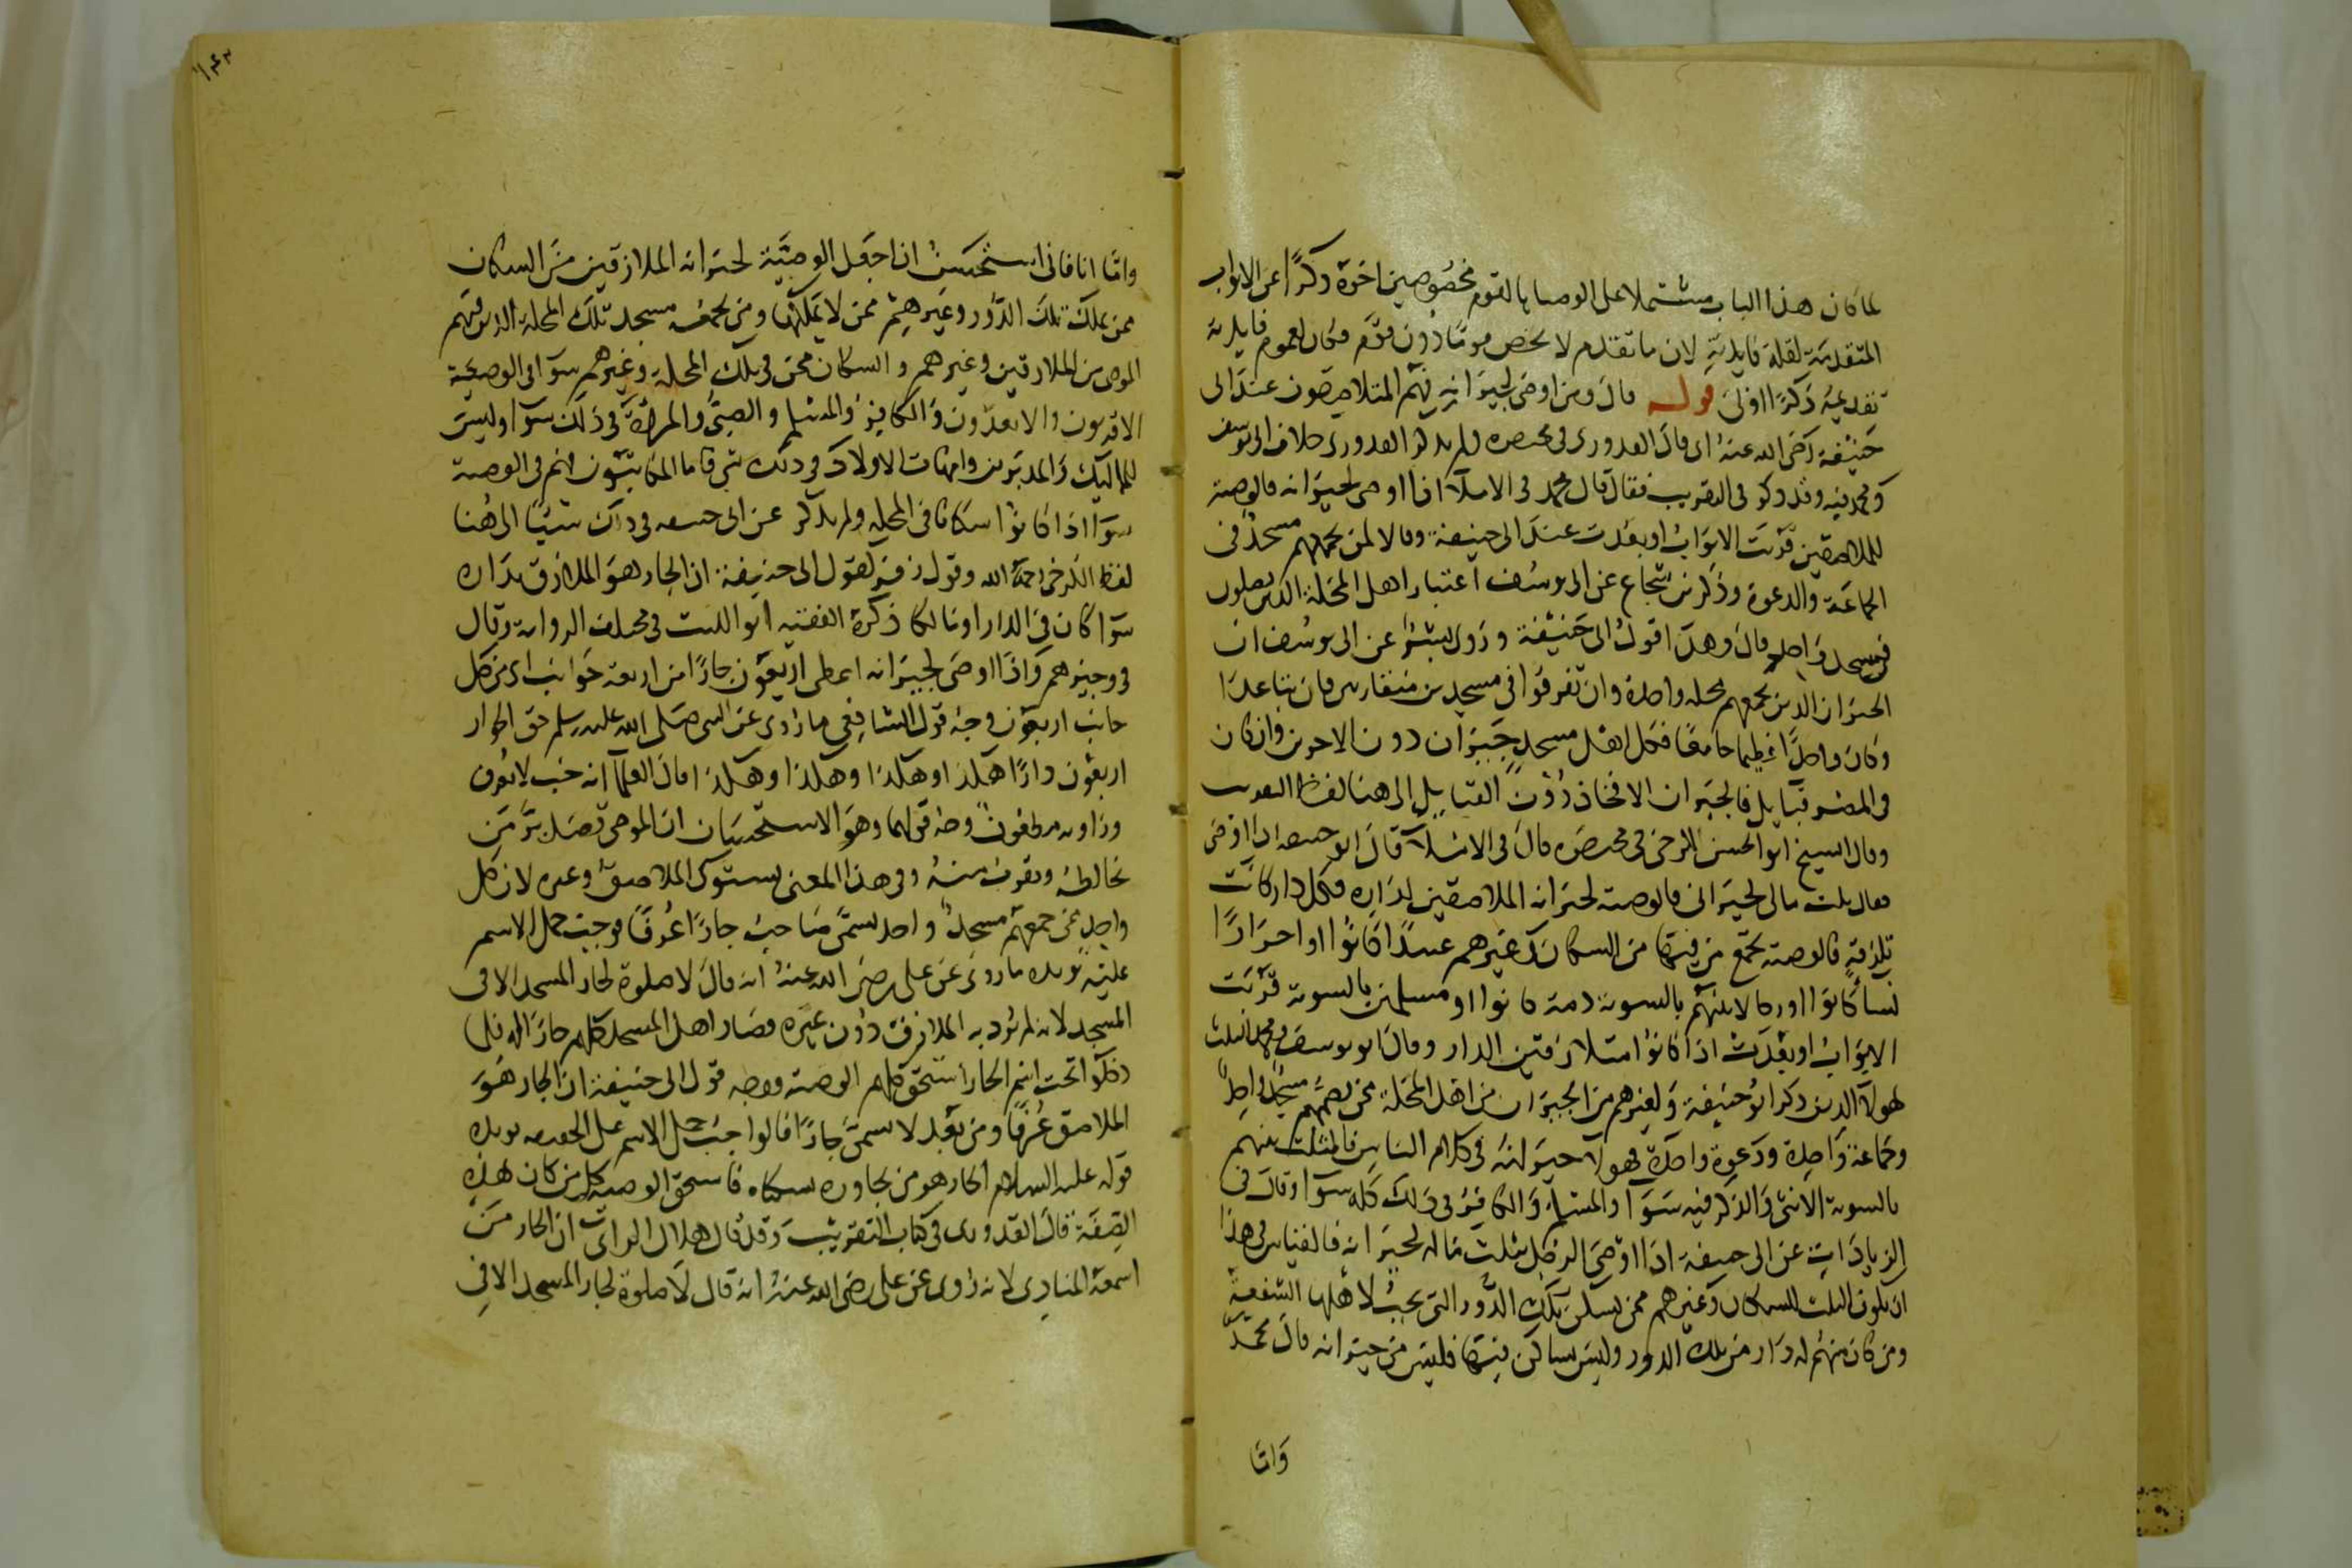 لما كان هذا الباب مشتملا على الوصايا لقوم مخصوصين اخره ذكرا عن الابواب
المتقدمة لقلة فايدته لان ما تقدم لا يخص قوما دون قوم فكان لعموم فايدته
تقديمه ذكرا اولى قوله قال ومن اوصى لجيرانه فهم المتلاصقون عند ابى
حنيفة رضى الله عنه اى قال القدورى فى مختصره ولم يذكر القدورى خلاف ابى يوسف
ومحمد فيه وقد ذكر فى التقريب فقال قال محمد فى الاملآ اذا اوصى لجيرانه فالوصية
للملاصقين قربت الابواب او بعدت عند ابى حنيفة وقالا لمن يجمعهم مسجد فى
الجماعة والدعوة وذكر بن شجاع عن ابى يوسف اعتبار اهل المحلة الذين يصلون
فى مسجد واحد قال وهذا قول ابى حنيفة وروى بشر عن ابى يوسف ان
الجيران الذين يجمعهم محله واحدة وان تفرقوا فى مسجدين متقاربين فان تباعدا
وكان واحدا عظيما جامعا فكل اهل مسجد جيران دون الاخرين وان كان
فى المصر قبايل فالجيران الافخاذ دون القبايل الى هنا لفظ التقريب
وقال الشيخ ابو الحسن الكرخى فى مختصره قال فى الاملآ قال ابو حنيفه اذا اوصى
فقال ثلث مالى لجيرانى فالوصية لجيرانه الملاصقين لداره فكل دار كانت
تلزقه فالوصية تجمع من فيها من السكان وغيرهم عبيدا كانوا او احرارا
نسآ كانوا او رجالا بينهم بالسوية ذمة كانوا او مسلمين بالسوية قربت
الابواب او بعدت اذا كانوا متلازقين الدار وقال ابو يوسف ومحمد الثلث
لهولآ الذين ذكر ابو حنيفة ولغيرهم من الجيران من اهل المحلة ممن يضمهم مسجد واحد
وجماعة واحدة ودعوة واحدة فهولآ جيرانه فى كلام الناس فالثلث بينهم
بالسوية الانثى والذكر فيه سوآ والمسلم والكافر فى ذلك كله سوآ وقال فى
الزيادات عن ابى حنيفة اذا اوصى الرجل بثلث ماله لجيرانه فالقياس فى هذا
ان يكون الثلث للسكان وغيرهم ممن يسكن تلك الدور التى يجب لاهلها الشفعة
ومن كان منهم له دار من تلك الدور وليس بساكن فيها فليس من جيرانه قال محمد
واما
١٤٣
واما انا فانى استحسن ان اجعل الوصية لجيرانه الملازقين من السكان
ممن يملك تلك الدور وغيرهم ممن لا يملكها ومن يجمعه مسجد تلك المحلة الذين فيهم
الموصى من الملازقين وغيرهم والسكان ممن فى تلك المحلة وغيرهم سوآ فى الوصية
الاقربون والابعدون والكافر والمسلم والصبى والمرأة فى ذلك سوآ وليس
للمماليك والمدبرين وامهات الاولاد فى ذلك شى فاما المكاتبون فهم فى الوصية
سوآ اذا كانوا سكانا فى المحلة ولم يذكر عن ابى حنيفه فى ذلك شيئا الى هنا
لفظ الكرخى رحمه الله وقول زفر كقول ابى حنيفة ان الجار هو الملازق بداره
سوآ كان فى الدار او مالكا ذكره الفقيه ابو الليث فى مختلف الرواية وقال
فى وجيزهم واذا اوصى لجيرانه اعطى اربعون جارا من اربعة جوانب اى من كل
جانب اربعون وجه قول الشافعى ما روى عن النبى صلى الله عليه وسلم حق الجوار
اربعون دارا هكذا وهكذا وهكذا وهكذا قال العلمآ انه خبر لا يعرف
وراويه مطعون وجه قولهما وهو الاستحسان ان الموصى قصد بر من
يخالطه ويقرب منه وفى هذا المعنى يستوى الملاصق وغيره لان كل
واحد ممن جمعهم مسجد واحد يسمى صاحبه جارا عرفا فوجب حمل الاسم
عليه يويده ما روى عن على رضى الله عنه انه قال لا صلوة لجار المسجد الا فى
المسجد لانه لم يرد به الملازق دون غيره فصار اهل المسجد كلهم جارا له
دخلوا تحت اسم الجار استحق كلهم الوصية ووجه قول ابى حنيفة ان الجار هو
الملاصق عرفا ومن بعد لا يسمى جارا قالوا جب حمل الاسم على الحقيقه يويده
قوله عليه السلام الجار هو من يجاوره سكناه فاستحق الوصية كل من كان هذه
الصفة قال القدورى فى كتاب التقريب وقد قال هلال الراى ان الجار من
اسمعه المنادى لانه روى عن على رضى الله عنه انه قال لا صلوة لجار المسجد الا فى